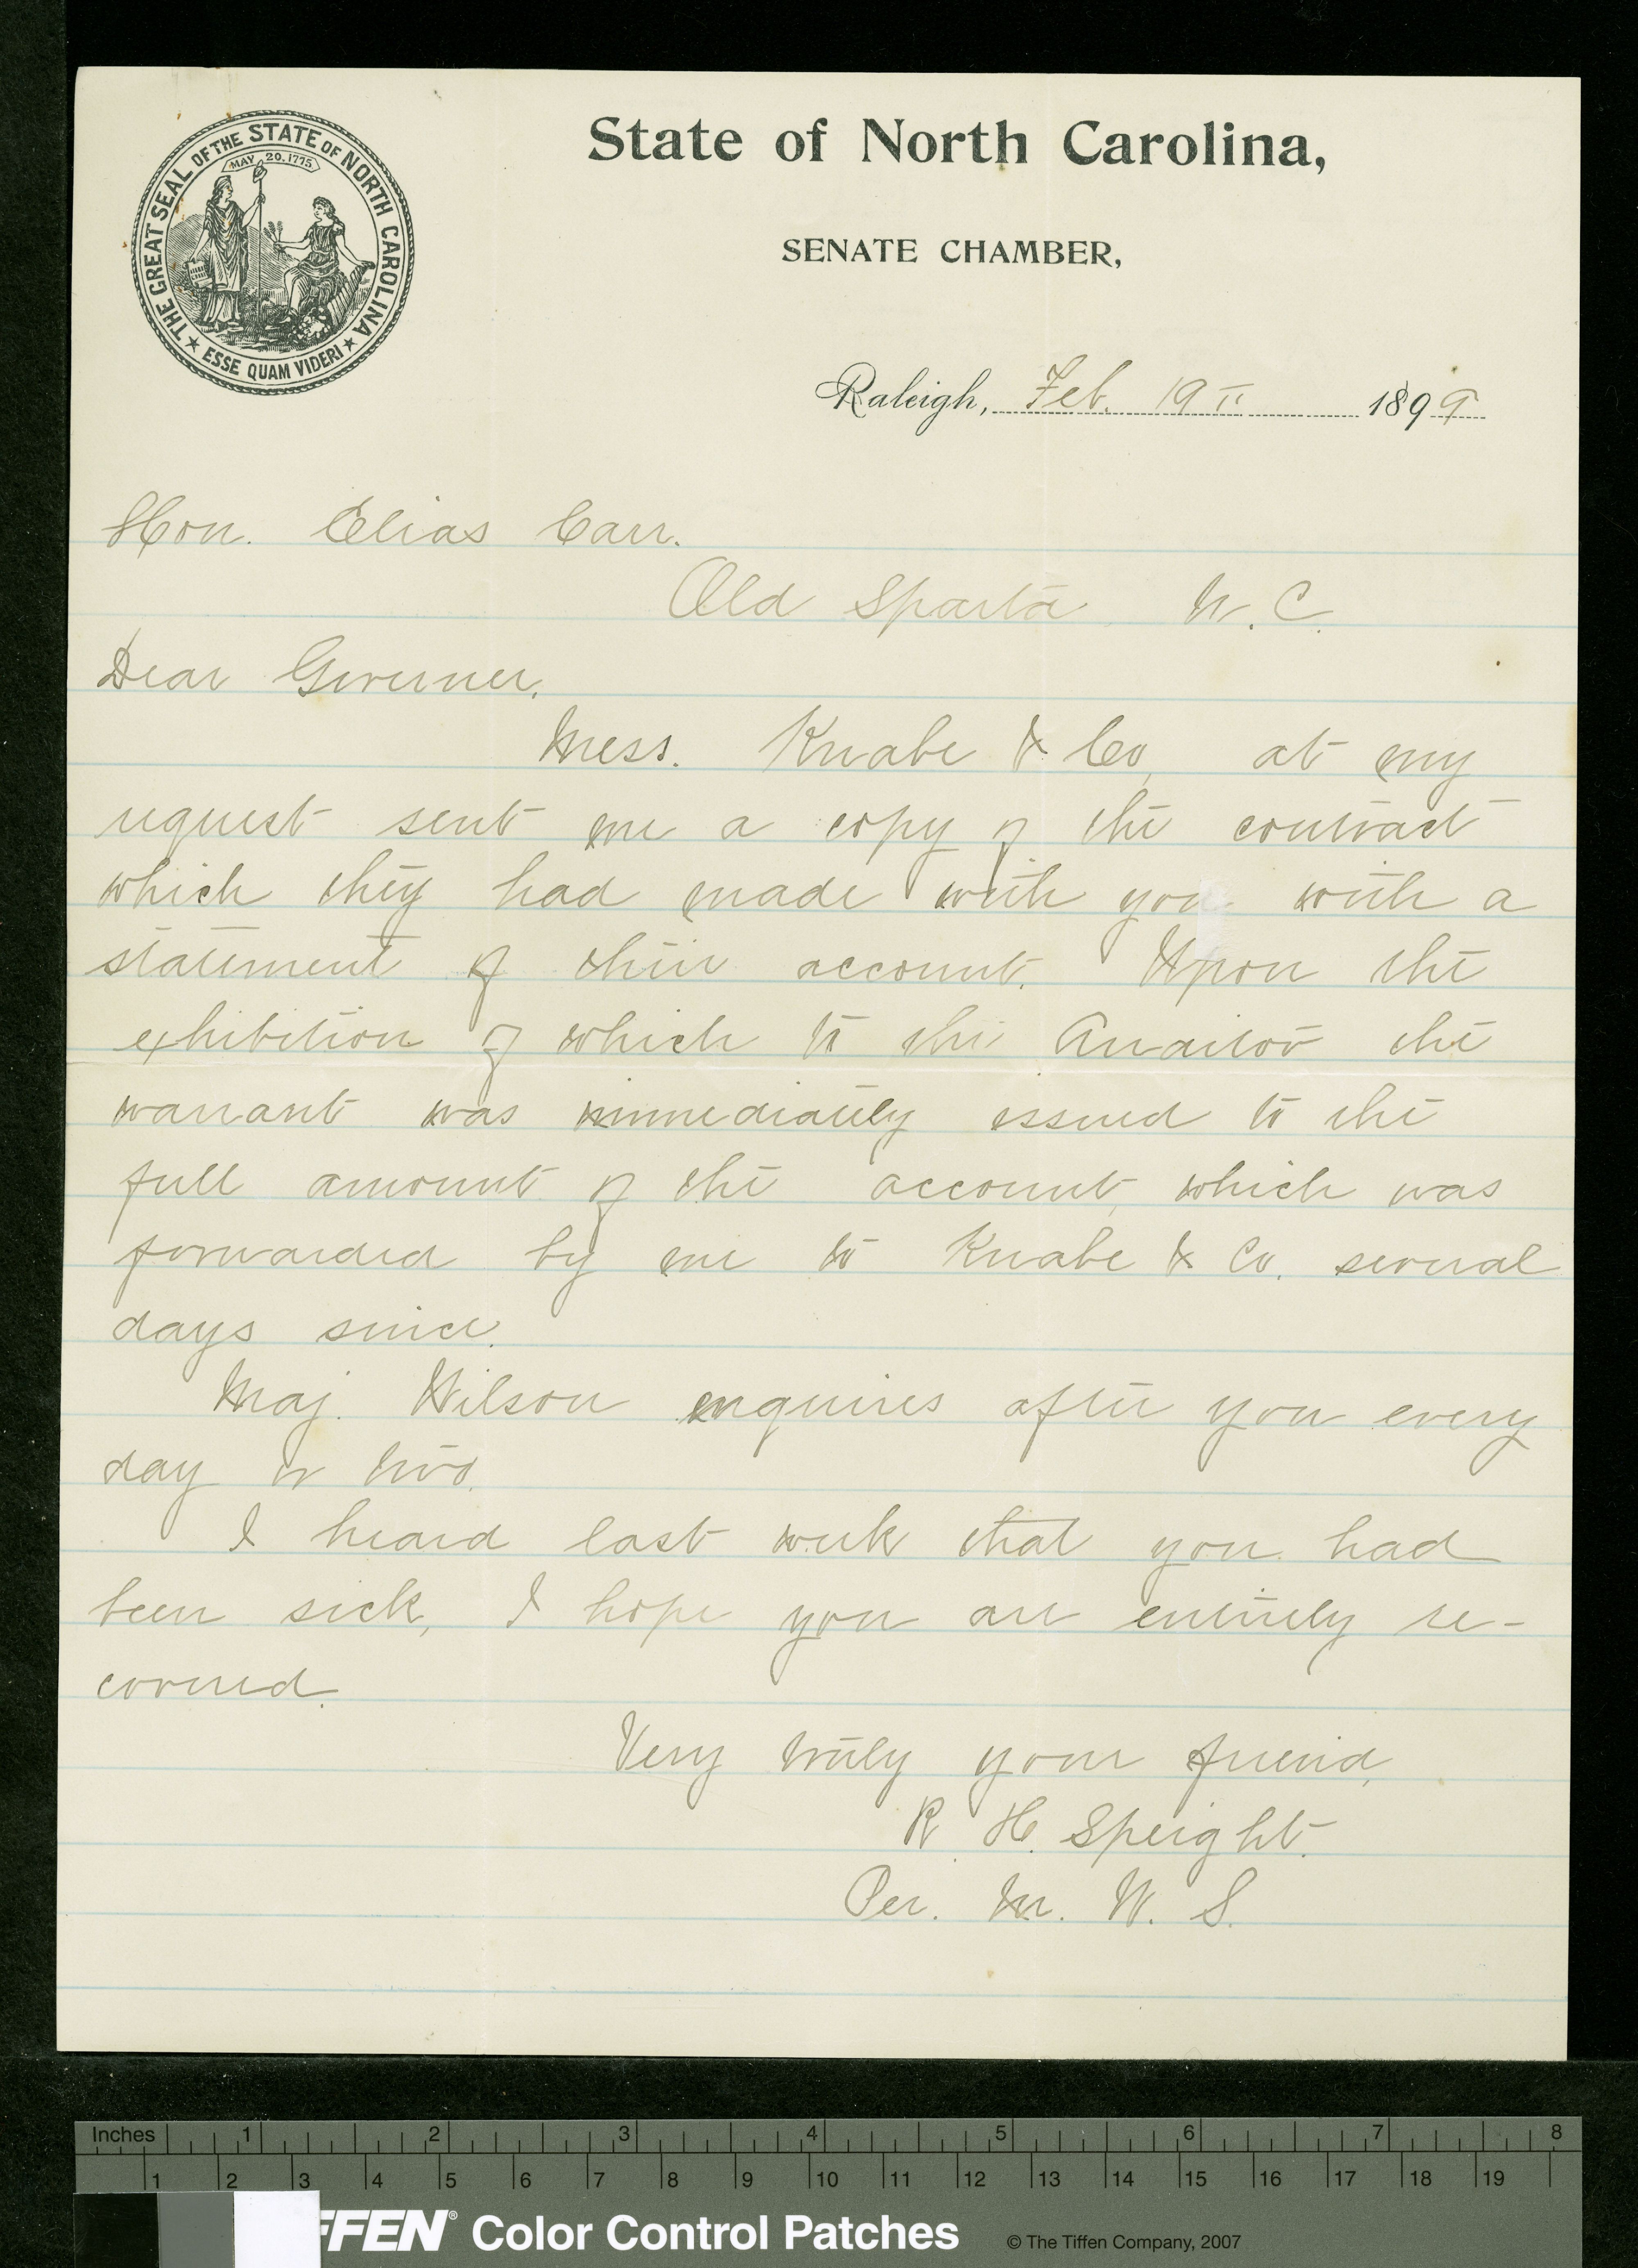 THE GREAT SEAL OF THE STATE OF NORTH CAROLINA
MAY 20, 1775
★ ESSE QUAM VIDERI ★
State of North Carolina,
SENATE CHAMBER,
Raleigh, Feb. 19" 1899
Hon. Elias Carr.
Old Sparta N. C.
Dear Governer,
Mess. Knabe & Co, at my
request sent me a copy of the contract
which they had made with you with a
statement of their account. Upon the
exhibition of which to the Auditor the
warrant was immediately issued to the
full amount of the account, which was
forwarded by me to Knabe & Co. several
days since.
Maj. Wilson enquires after you every
day or two.
I heard last week that you had
been sick, I hope you are entirely re-
covered.
Very truly your friend,
R. H. Speight.
Per. M. W. S.
Inches 1 2 3 4 5 6 7 8
1 2 3 4 5 6 7 8 9 10 11 12 13 14 15 16 17 18 19
FFEN® Color Control Patches © The Tiffen Company, 2007